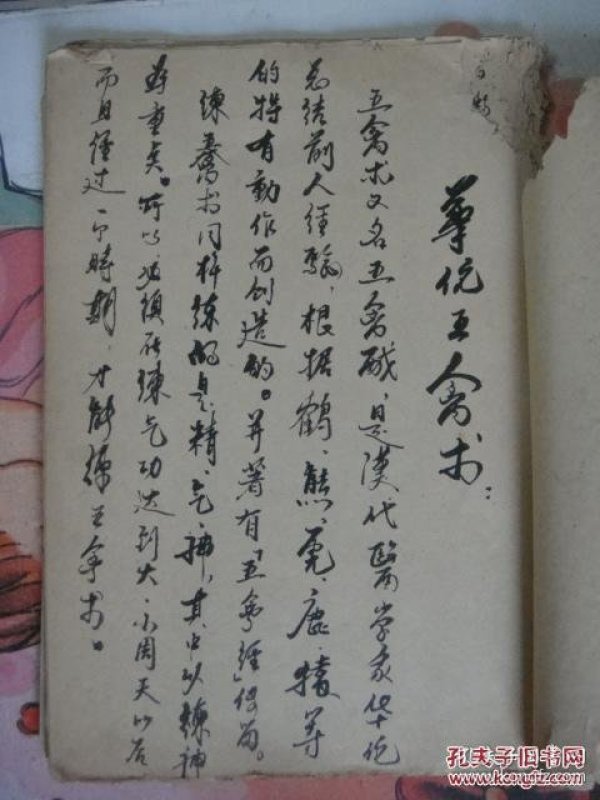 華佗五禽术:
五禽术又名五禽戲,是漢代醫学家华佗
总结前人经驗,根据鶴、熊、虎、鹿、猿等
的特有動作而创造的。并著有「五禽经」传留。
练五禽术同样练的是精、气、神,其中以练神
為重点。所以必须在練气功达到大、小周天以后
而且经过一个時期,才能练五禽术。
孔夫子旧书网
www.kongfz.com